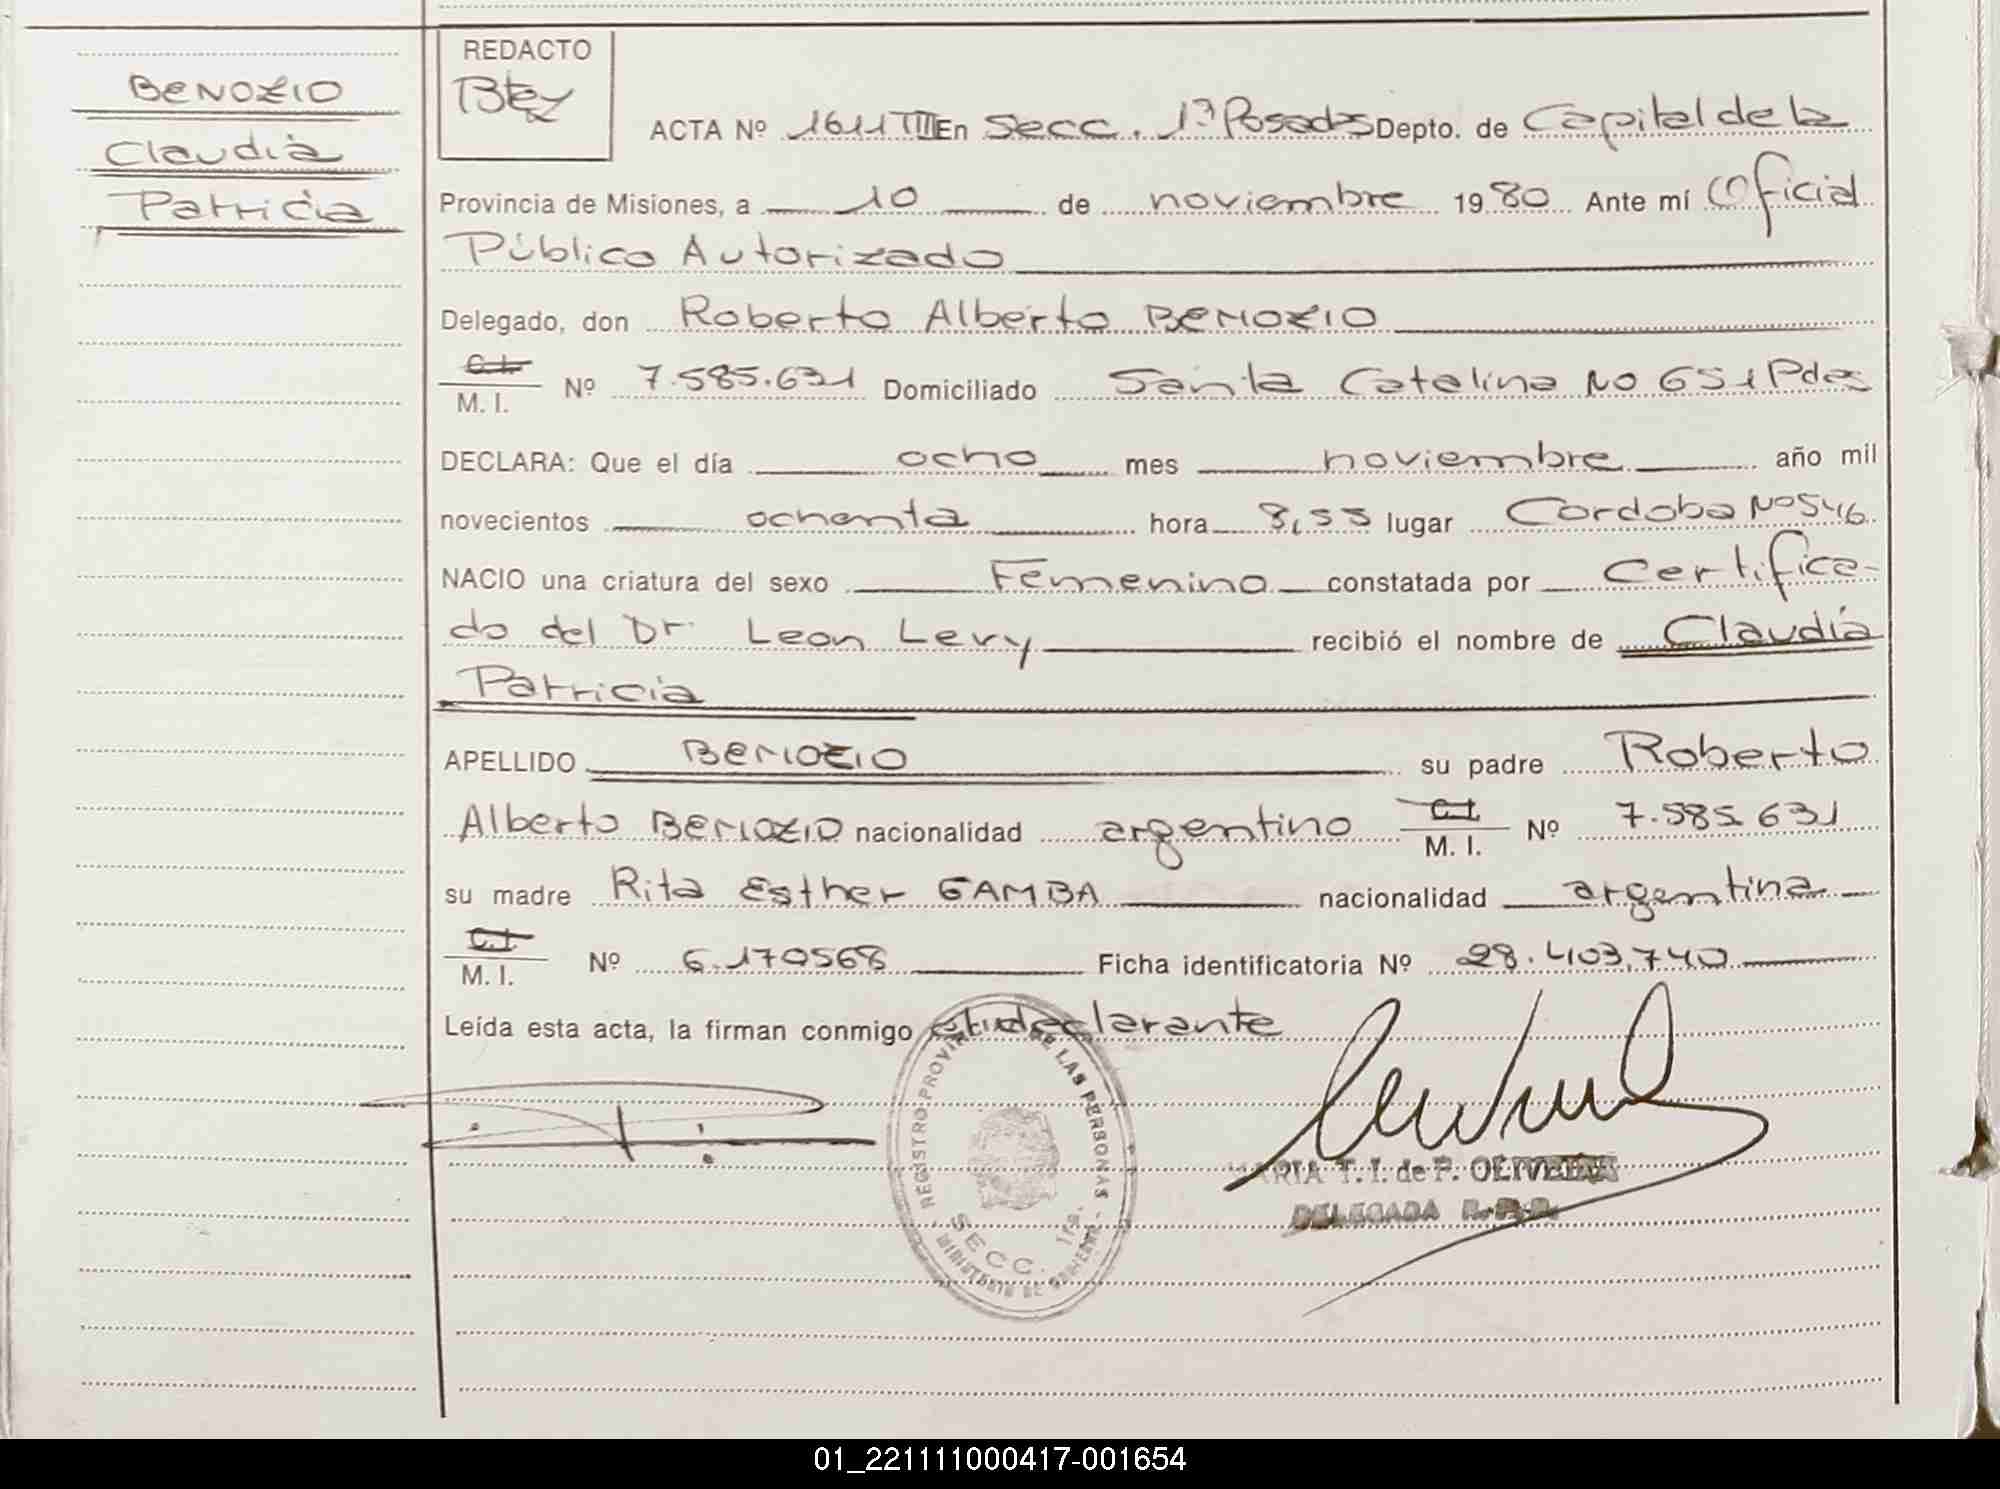 BENOZIO
Claudia
Patricia
REDACTO
ACTA Nº 1611 TIII En Secc. 1ª Posadas Depto. de Capital de la
Provincia de Misiones, a 10 de noviembre 1980 Ante mí Oficial
Público Autorizado
Delegado, don Roberto Alberto BENOZIO
C.I.
M. I. Nº 7.585.631 Domiciliado Santa Catalina No 651 Pdas
DECLARA: Que el día ocho mes noviembre año mil
novecientos ochenta hora 8,55 lugar Cordoba Nº 546
NACIO una criatura del sexo Femenino constatada por Certifica-
do del Dr. Leon Levy recibió el nombre de Claudia
Patricia
APELLIDO BENOZIO su padre Roberto
Alberto BENOZIO nacionalidad argentino C.I.
M. I. Nº 7.585.631
su madre Rita Esther GAMBA nacionalidad argentina
C.I.
M. I. Nº 6.170568 Ficha identificatoria Nº 28.403.740
Leída esta acta, la firman conmigo declarante
REGISTRO PROVIN DE LAS PERSONAS
SECC. 1ra.
MINISTERIO DE GOBIERNO
MARIA T. I. de P. OLIVEIRA
DELEGADA R.P.P.
01_221111000417-001654